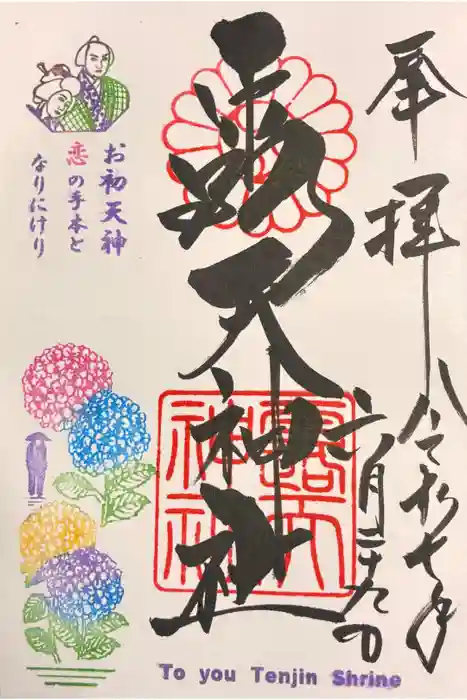 奉拝
令和七年
六月二十九日
露天神社
露天
神社
お初天神
恋の手本と
なりにけり
To you Tenjin Shrine